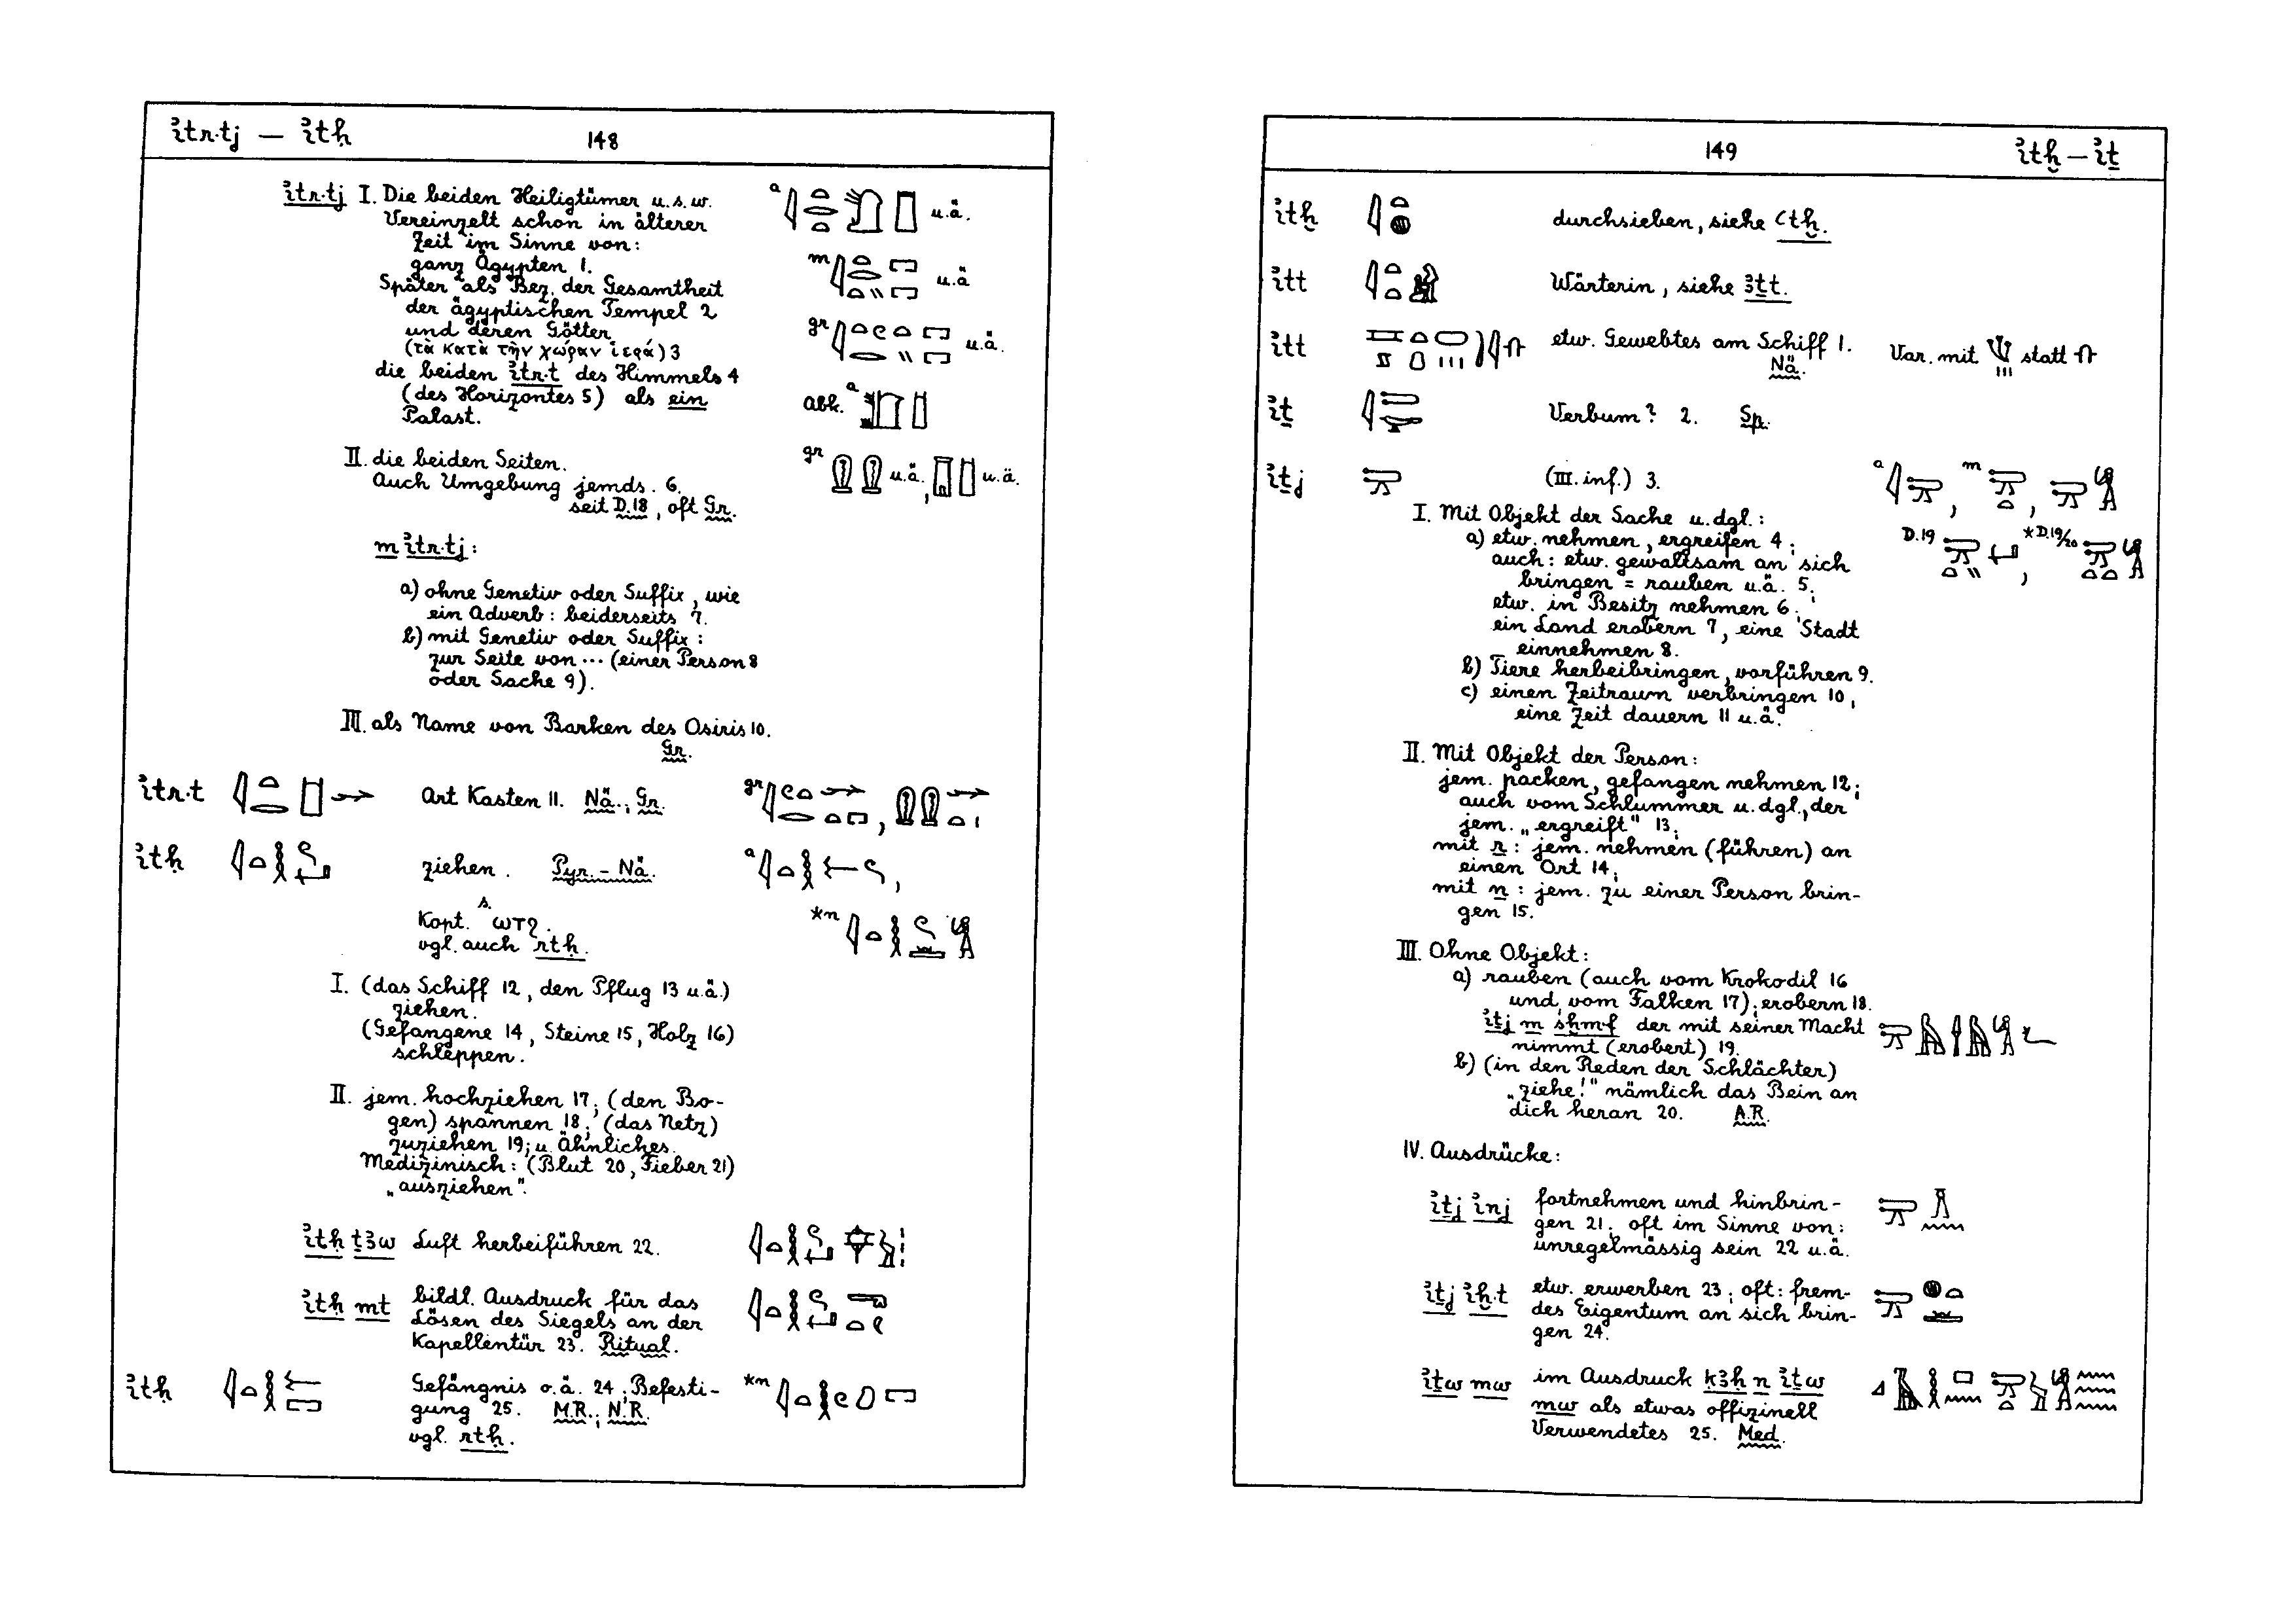 ỉtr·tj — ỉtḥ
148
ỉtr·tj I. Die beiden Heiligtümer u.s.w.
Vereinzelt schon in älterer
Zeit im Sinne von:
ganz Ägypten 1.
Später als Bez. der Gesamtheit
der ägyptischen Tempel 2
und deren Götter
(τὰ κατὰ τὴν χώραν ἱερά) 3
die beiden ỉtr·t des Himmels 4
(des Horizontes 5) als ein
Palast.
a u.ä.
m u.ä
gr u.ä.
Abk. a
II. die beiden Seiten.
Auch Umgebung jemds. 6.
seit D.18, oft Gr.
gr u.ä., u.ä.
m ỉtr·tj:
a) ohne Genetiv oder Suffix, wie
ein Adverb: beiderseits 7.
b) mit Genetiv oder Suffix:
zur Seite von ··· (einer Person 8
oder Sache 9).
III. als Name von Barken des Osiris 10.
Gr.
ỉtr·t Art Kasten 11. Nä.; Gr. gr ,
ỉtḥ ziehen. Pyr. – Nä. a ,
Kopt. s. ⲱⲧϩ. *n
vgl. auch rtḥ.
I. (das Schiff 12, den Pflug 13 u.ä.)
ziehen.
(Gefangene 14, Steine 15, Holz 16)
schleppen.
II. jem. hochziehen 17; (den Bo-
gen) spannen 18; (das Netz)
zuziehen 19; u. Ähnliches.
Medizinisch: (Blut 20, Fieber 21)
„ausziehen".
ỉtḥ ṯꜣw Luft herbeiführen 22.
ỉtḥ mt bildl. Ausdruck für das
Lösen des Siegels an der
Kapellentür 23. Ritual.
ỉtḥ Gefängnis o.ä. 24; Befesti- *n
gung 25. M.R.; N.R.
vgl. rtḥ.
149
ỉtḫ — ỉṯ
ỉtḫ durchsieben, siehe ꜥtḫ.
ỉtt Wärterin, siehe ꜣṯt.
ỉtt etw. Gewebtes am Schiff 1. Var. mit statt
Nä.
ỉṯ Verbum? 2. Sp.
ỉṯj (III. inf.) 3. a , m ,
D.19 , *D.19/20
I. Mit Objekt der Sache u.dgl.:
a) etw. nehmen, ergreifen 4;
auch: etw. gewaltsam an sich
bringen = rauben u.ä. 5;
etw. in Besitz nehmen 6;
ein Land erobern 7, eine Stadt
einnehmen 8.
b) Tiere herbeibringen, vorführen 9.
c) einen Zeitraum verbringen 10,
eine Zeit dauern 11 u.ä.
II. Mit Objekt der Person:
jem. packen, gefangen nehmen 12;
auch vom Schlummer u. dgl., der
jem. „ergreift" 13;
mit r: jem. nehmen (führen) an
einen Ort 14;
mit n: jem. zu einer Person brin-
gen 15.
III. Ohne Objekt:
a) rauben (auch vom Krokodil 16
und vom Falken 17); erobern 18.
ỉṯj m sḫm·f der mit seiner Macht
nimmt (erobert) 19.
b) (in den Reden der Schlächter)
„ziehe!" nämlich das Bein an
dich heran 20. A.R.
IV. Ausdrücke:
ỉṯj ỉnj fortnehmen und hinbrin-
gen 21; oft im Sinne von:
unregelmässig sein 22 u.ä.
ỉṯj ỉḫ·t etw. erwerben 23; oft: frem-
des Eigentum an sich brin-
gen 24.
ỉṯw mw im Ausdruck ḳꜣḥ n ỉṯw
mw als etwas offizinell
Verwendetes 25. Med.